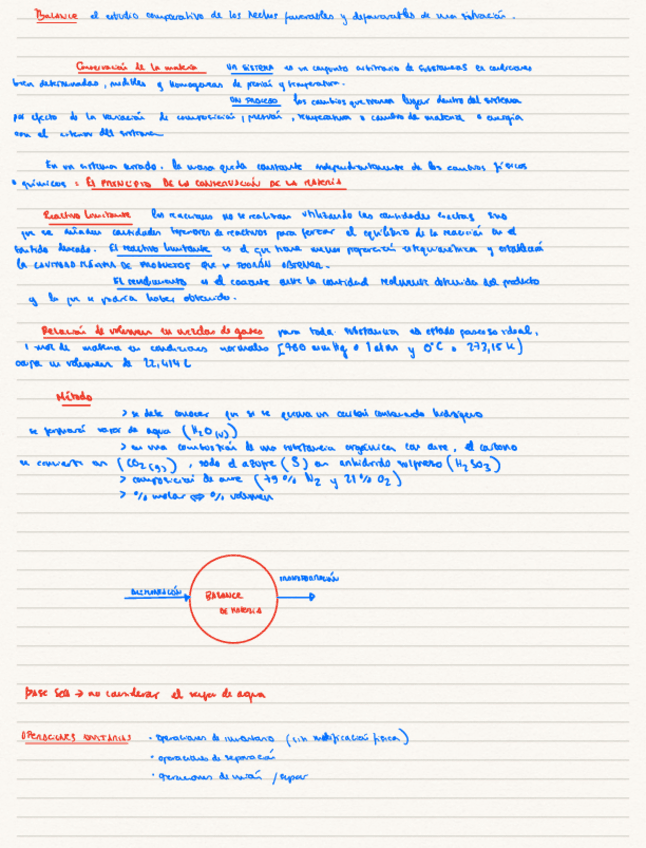 Balance el estudio comparativo de los hechos favorables y desfavorables de una situación.
Conservación de la materia un sistema es un conjunto arbitrario de substancias en condiciones
bien determinadas, medibles y homogéneas de presión y temperatura.
un proceso los cambios que tienen lugar dentro del sistema
por efecto de la variación de composición, presión, temperatura o cambio de materia o energía
con el exterior del sistema
En un sistema cerrado. la masa queda constante independientemente de los cambios físicos
o químicos : El principio de la conservación de la materia
Reactivo limitante las reacciones no se realizan utilizando las cantidades exactas sino
que se añaden cantidades superiores de reactivos para forzar el equilibrio de la reacción en el
sentido deseado. El reactivo limitante es el que tiene menor proporción estequiométrica y establecerá
la cantidad máxima de productos que se podrán obtener.
El rendimiento es el cociente entre la cantidad realmente obtenida del producto
y la que se podría haber obtenido.
Relación de volumen en mezclas de gases para toda substancia en estado gaseoso ideal,
1 mol de materia en condiciones normales [760 mmHg o 1 atm y 0°C o 273,15 K)
ocupa un volumen de 22,414 L
Método
> se debe conocer que si se quema un carbón conteniendo hidrógeno
se formará vapor de agua (H₂O(v))
> en una combustión de una substancia orgánica con aire, el carbono
se convierte en (CO₂(g)), todo el azufre (S) en anhídrido sulfuroso (H₂SO₃)
> composición de aire (79% N₂ y 21% O₂)
> % molar ⇔ % volumen
ALIMENTACIÓN
BALANCE
DE MATERIA
TRANSFORMACIÓN
BASE SECA → no considerar el vapor de agua
OPERACIONES UNITARIAS • operaciones de inventario (sin modificación física)
• operaciones de separación
• operaciones de unión / separ